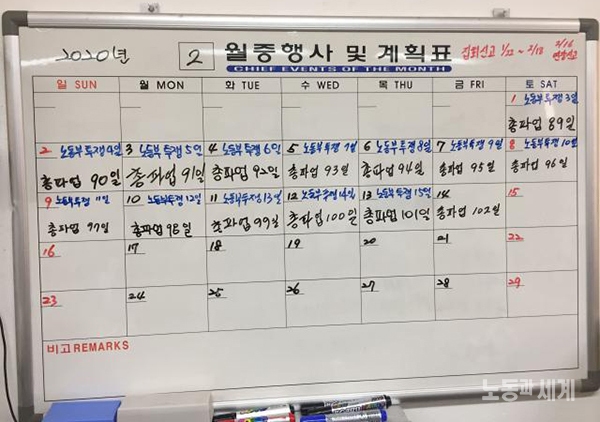 2020년 2 월중행사 및 계획표 집회신고 1/22 ~ 2/18 2/16 연장신고
CHIEF EVENTS OF THE MONTH
일 SUN 월 MON 화 TUE 수 WED 목 THU 금 FRI 토 SAT
1 노동부투쟁 3일
총파업 89일
2 노동부투쟁 4일 3 노동부투쟁 5일 4 노동부투쟁 6일 5 노동부투쟁 7일 6 노동부투쟁 8일 7 노동부투쟁 9일 8 노동부투쟁 10일
총파업 90일 총파업 91일 총파업 92일 총파업 93일 총파업 94일 총파업 95일 총파업 96일
9 노동부투쟁 11일 10 노동부투쟁 12일 11 노동부투쟁 13일 12 노동부투쟁 14일 13 노동부투쟁 15일 14 15
총파업 97일 총파업 98일 총파업 99일 총파업 100일 총파업 101일 총파업 102일
16 17 18 19 20 21 22
23 24 25 26 27 28 29
비고 REMARKS
노동과 세계